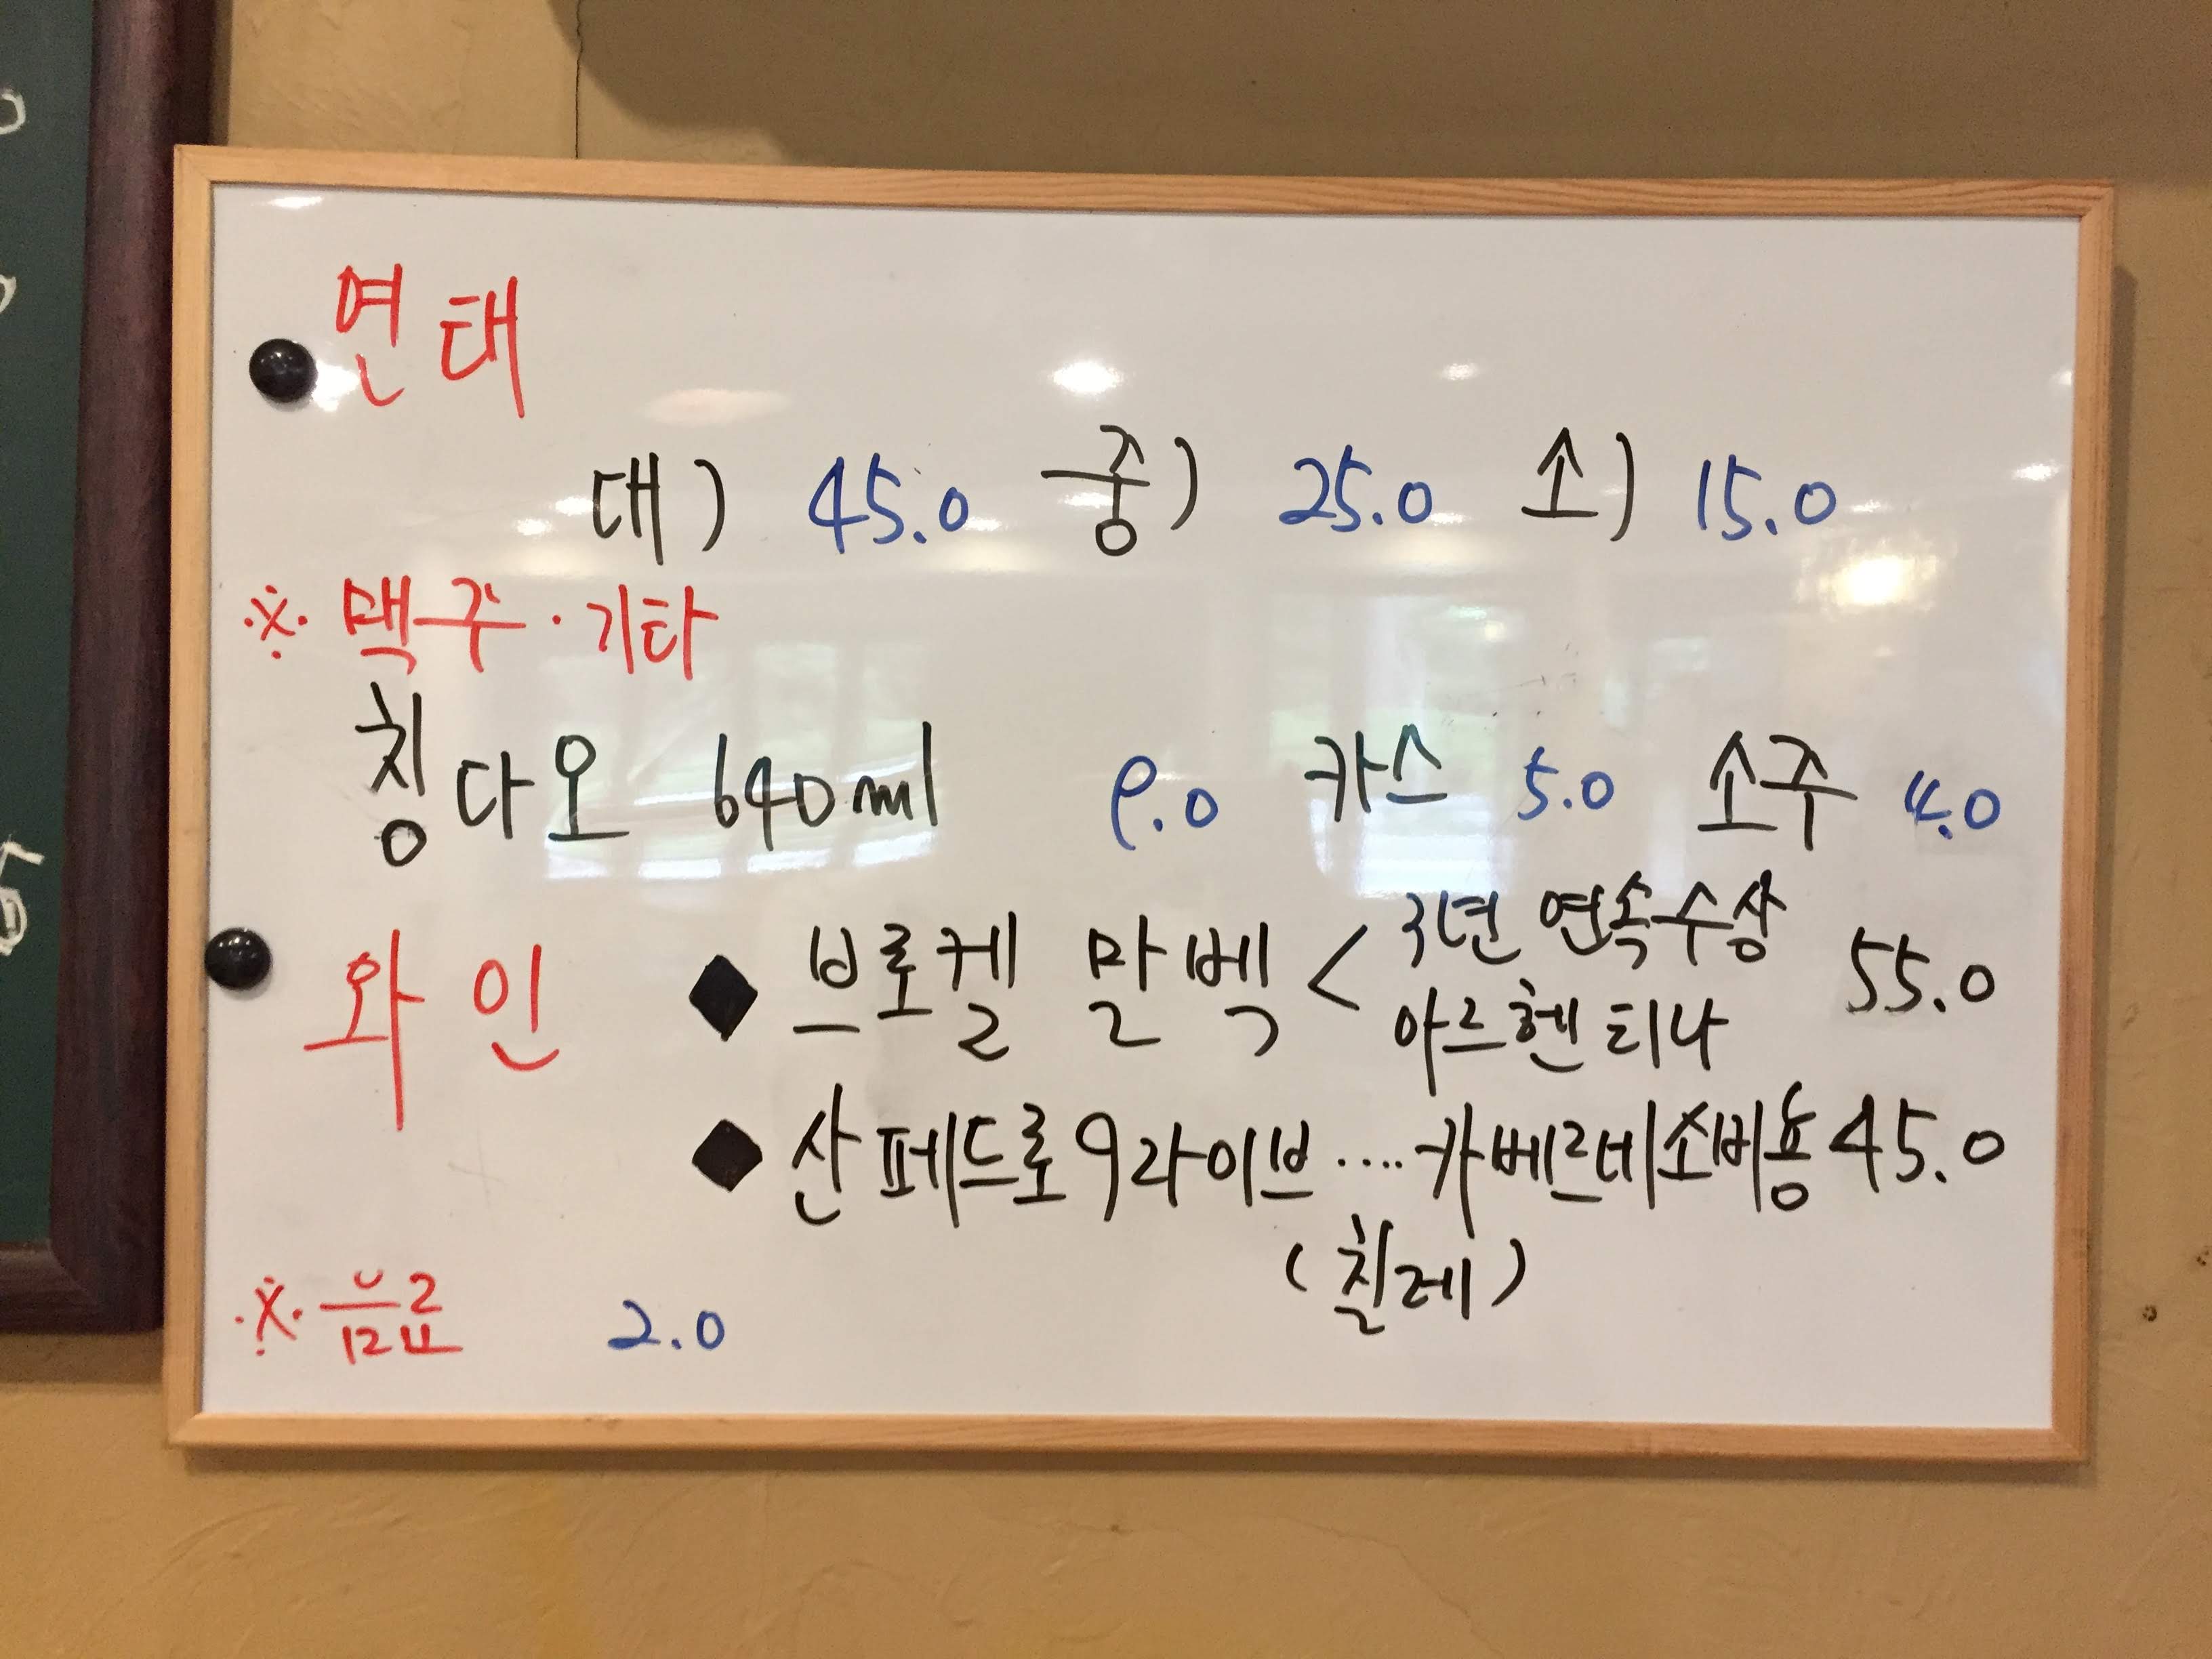 연태
대) 45.0 중) 25.0 소) 15.0
※ 맥주·기타
칭다오 640ml 9.0 카스 5.0 소주 4.0
와인 ◆ 브로켈 말벡 < 3년 연속수상 55.0
아르헨티나
◆ 산페드로 9라이브 .... 카베르네소비용 45.0
(칠레)
※ 음료 2.0